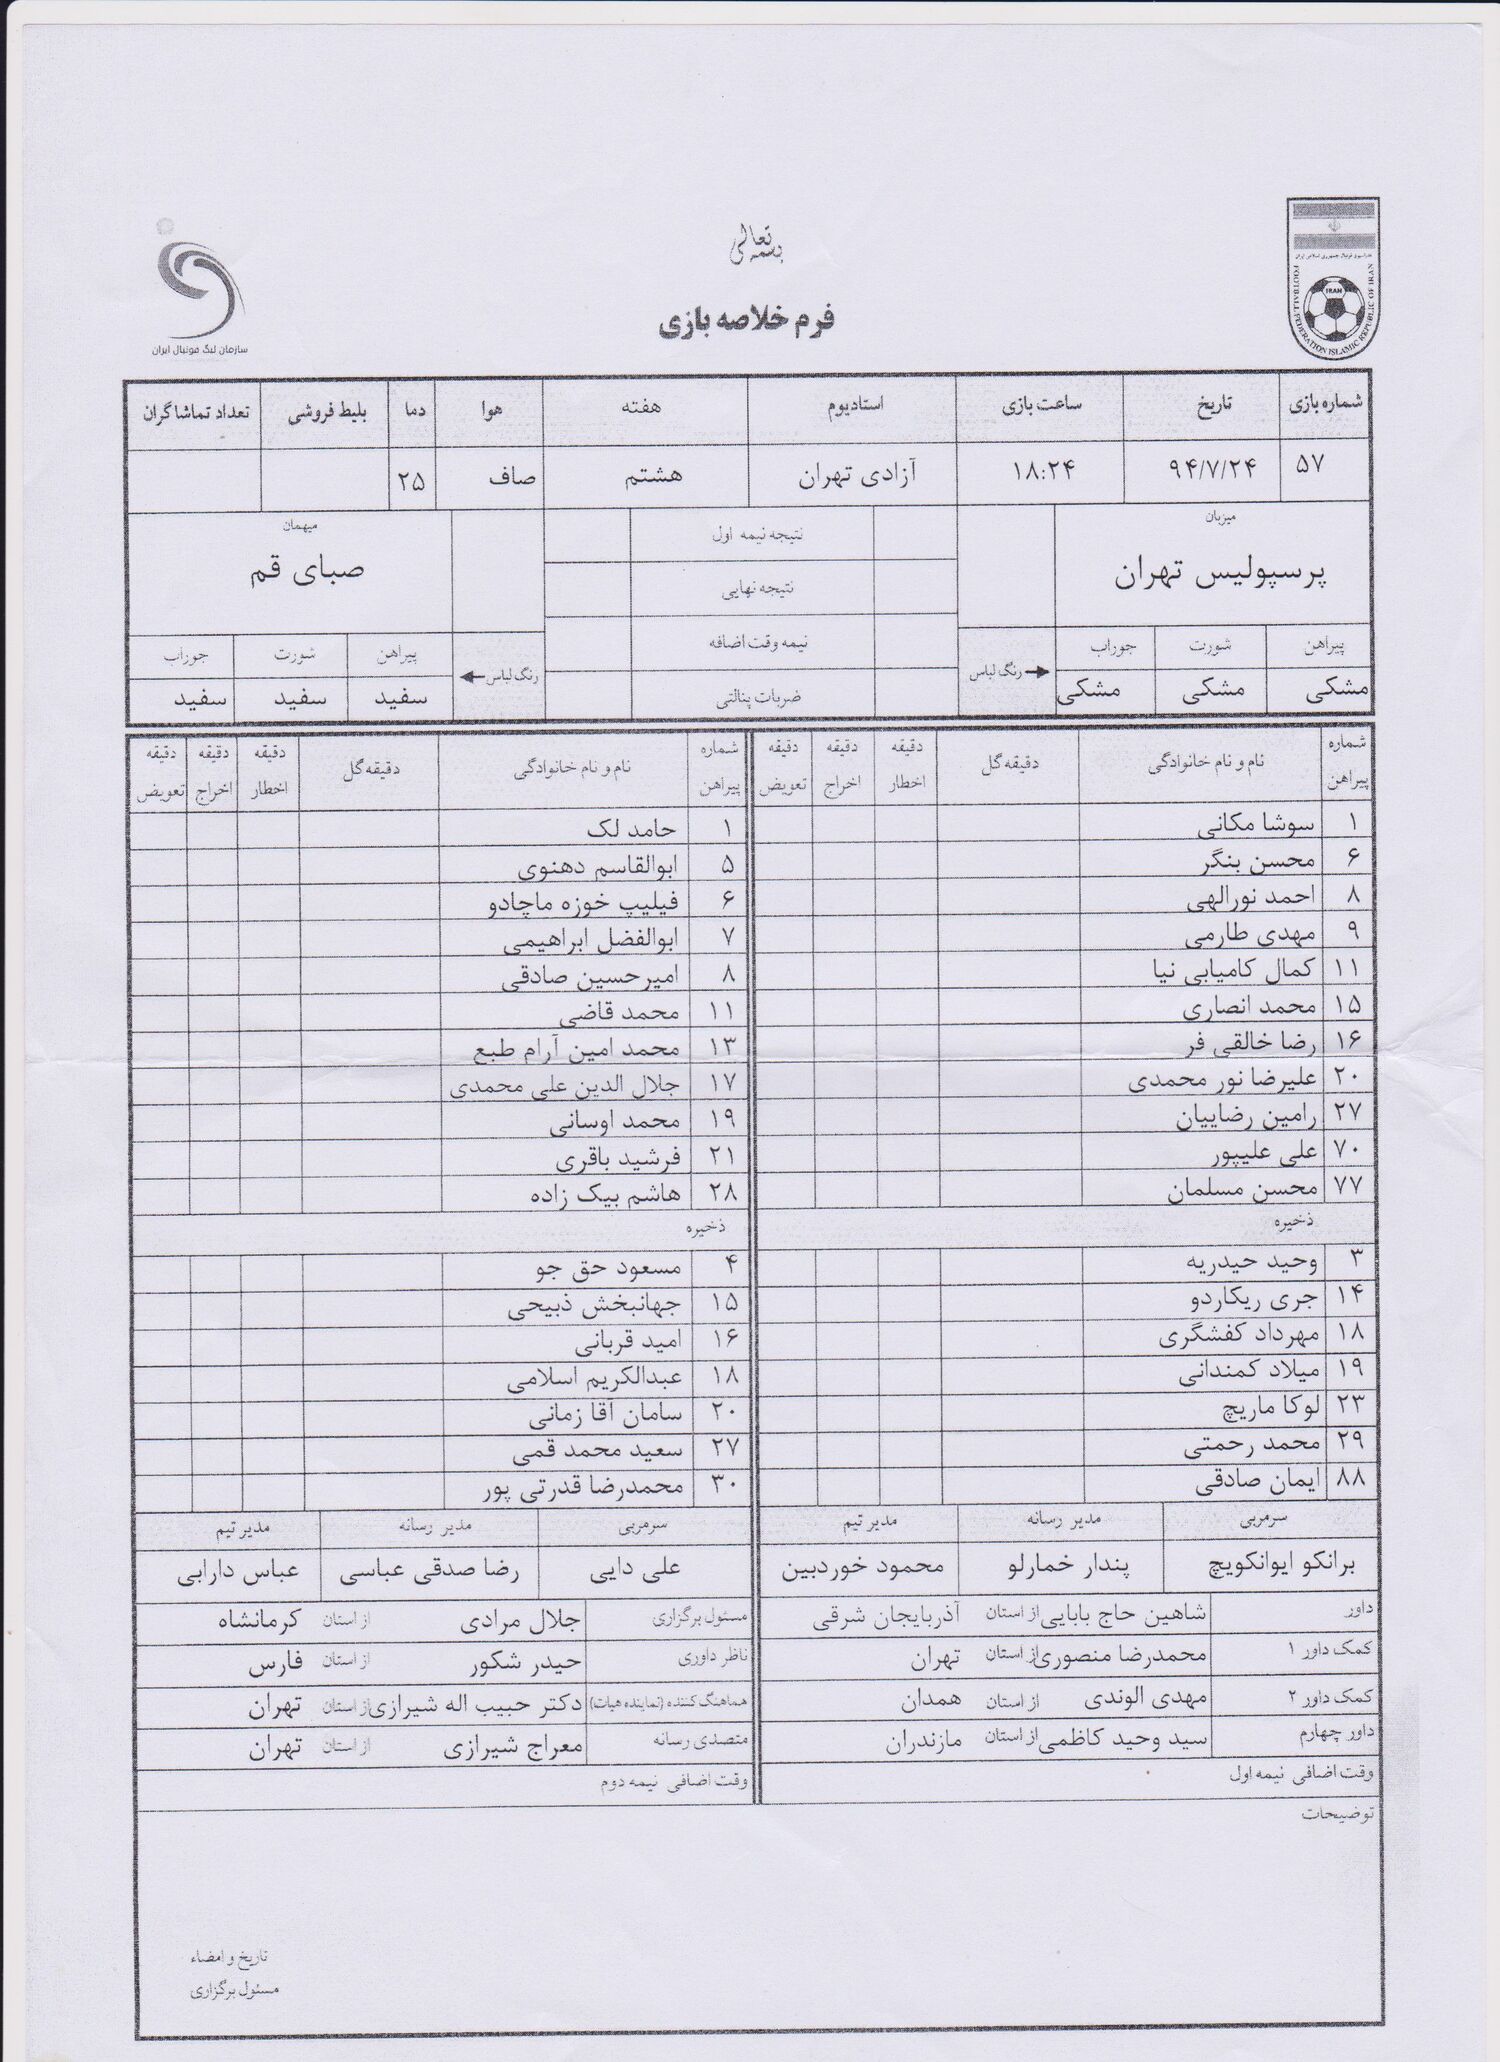 بسمه تعالی
فرم خلاصه بازی
سازمان لیگ فوتبال ایران
FOOTBALL FEDERATION ISLAMIC REPUBLIC OF IRAN
IRAN
شماره بازی تاریخ ساعت بازی استادیوم هفته هوا دما بلیط فروشی تعداد تماشاگران
۵۷ ۹۴/۷/۲۴ ۱۸:۲۴ آزادی تهران هشتم صاف ۲۵
میزبان نتیجه نیمه اول میهمان
پرسپولیس تهران نتیجه نهایی صبای قم
نیمه وقت اضافه
پیراهن شورت جوراب رنگ لباس ضربات پنالتی رنگ لباس پیراهن شورت جوراب
مشکی مشکی مشکی سفید سفید سفید
شماره پیراهن نام و نام خانوادگی دقیقه گل دقیقه اخطار دقیقه اخراج دقیقه تعویض شماره پیراهن نام و نام خانوادگی دقیقه گل دقیقه اخطار دقیقه اخراج دقیقه تعویض
۱ سوشا مکانی ۱ حامد لک
۶ محسن بنگر ۵ ابوالقاسم دهنوی
۸ احمد نورالهی ۶ فیلیپ خوزه ماچادو
۹ مهدی طارمی ۷ ابوالفضل ابراهیمی
۱۱ کمال کامیابی نیا ۸ امیرحسین صادقی
۱۵ محمد انصاری ۱۱ محمد قاضی
۱۶ رضا خالقی فر ۱۳ محمد امین آرام طبع
۲۰ علیرضا نور محمدی ۱۷ جلال الدین علی محمدی
۲۷ رامین رضاییان ۱۹ محمد اوسانی
۷۰ علی علیپور ۲۱ فرشید باقری
۷۷ محسن مسلمان ۲۸ هاشم بیک زاده
ذخیره ذخیره
۳ وحید حیدریه ۴ مسعود حق جو
۱۴ جری ریکاردو ۱۵ جهانبخش ذبیحی
۱۸ مهرداد کفشگری ۱۶ امید قربانی
۱۹ میلاد کمندانی ۱۸ عبدالکریم اسلامی
۲۳ لوکا ماریچ ۲۰ سامان آقا زمانی
۲۹ محمد رحمتی ۲۷ سعید محمد قمی
۸۸ ایمان صادقی ۳۰ محمدرضا قدرتی پور
سرمربی مدیر رسانه مدیر تیم سرمربی مدیر رسانه مدیر تیم
برانکو ایوانکویچ پندار خمارلو محمود خوردبین علی دایی رضا صدقی عباسی عباس دارابی
داور شاهین حاج بابایی از استان آذربایجان شرقی مسئول برگزاری جلال مرادی از استان کرمانشاه
کمک داور ۱ محمدرضا منصوری از استان تهران ناظر داوری حیدر شکور از استان فارس
کمک داور ۲ مهدی الوندی از استان همدان هماهنگ کننده (نماینده هیات) دکتر حبیب اله شیرازی از استان تهران
داور چهارم سید وحید کاظمی از استان مازندران متصدی رسانه معراج شیرازی از استان تهران
وقت اضافی نیمه اول وقت اضافی نیمه دوم
توضیحات
تاریخ و امضاء
مسئول برگزاری